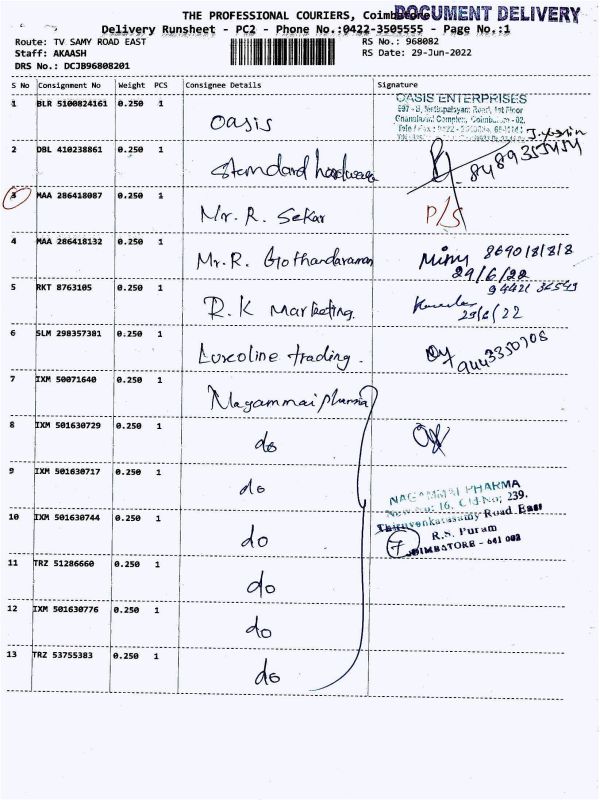 THE PROFESSIONAL COURIERS, Coimbatore
DOCUMENT DELIVERY
Delivery Runsheet - PC2 - Phone No.:0422-3505555 - Page No.:1
Route: TV SAMY ROAD EAST
RS No.: 968082
Staff: AKAASH
RS Date: 29-Jun-2022
DRS No.: DCJB96808201
S No Consignment No Weight PCS Consignee Details Signature
1 BLR 5100824161 0.250 1 Oasis
OASIS ENTERPRISES
1st Floor
2 DBL 410238861 0.250 1 Standard hardware 8489353454
3 MAA 286418087 0.250 1 Mr. R. Sekar P/S
4 MAA 286418132 0.250 1 Mr. R. Gothandaraman
29/6/22
5 RKT 8763105 0.250 1 R.K Marketing.
29/6/22
6 SLM 298357381 0.250 1 Luxcoline trading. 9443350708
7 IXM 50071640 0.250 1 Nagammai pharma
8 IXM 501630729 0.250 1 do
9 IXM 501630717 0.250 1 do
NAGAMMAI PHARMA
New No: 16, Old No; 239,
10 IXM 501630744 0.250 1 do
Thiruvenkatasamy Road East
R.S. Puram
7 COIMBATORE - 641 002
11 TRZ 51286660 0.250 1 do
12 IXM 501630776 0.250 1 do
13 TRZ 53755383 0.250 1 do